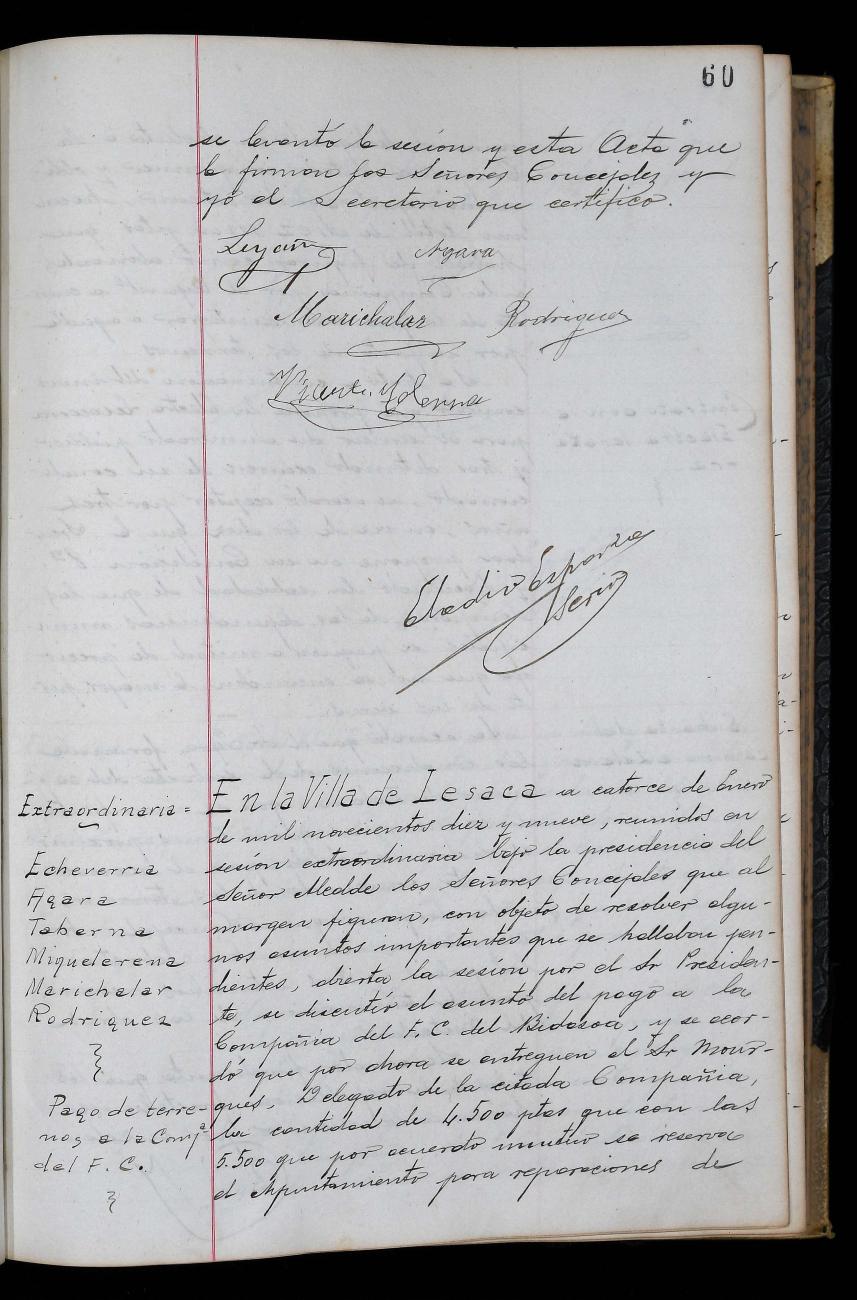 60
se levantó la sesión y esta Acta que
la firman los Señores Concejales y
yo el Secretario que certifico.
Agara
Marichalar Rodriguez
Eladio Esparza
Serio
Extraordinaria =
Echeverria
Agara
Taberna
Miquelerena
Marichalar
Rodriguez
Pago de terre-
nos a la Compª
del F. C.
En la Villa de Lesaca a catorce de Enero
de mil novecientos diez y nueve, reunidos en
sesión extraordinaria bajo la presidencia del
Señor Alcalde los Señores Concejales que al
margen figuran, con objeto de resolver algu-
nos asuntos importantes que se hallaban pen-
dientes, abierta la sesión por el Sr Presiden-
te, se discutió el asunto del pago a la
Compañia del F. C. del Bidasoa, y se acor-
dó que por ahora se entreguen al Sr Mour-
gues, Delegado de la citada Compañia,
la cantidad de 4.500 ptas que con las
5.500 que por acuerdo mutuo se reserva
el Ayuntamiento para reparaciones de